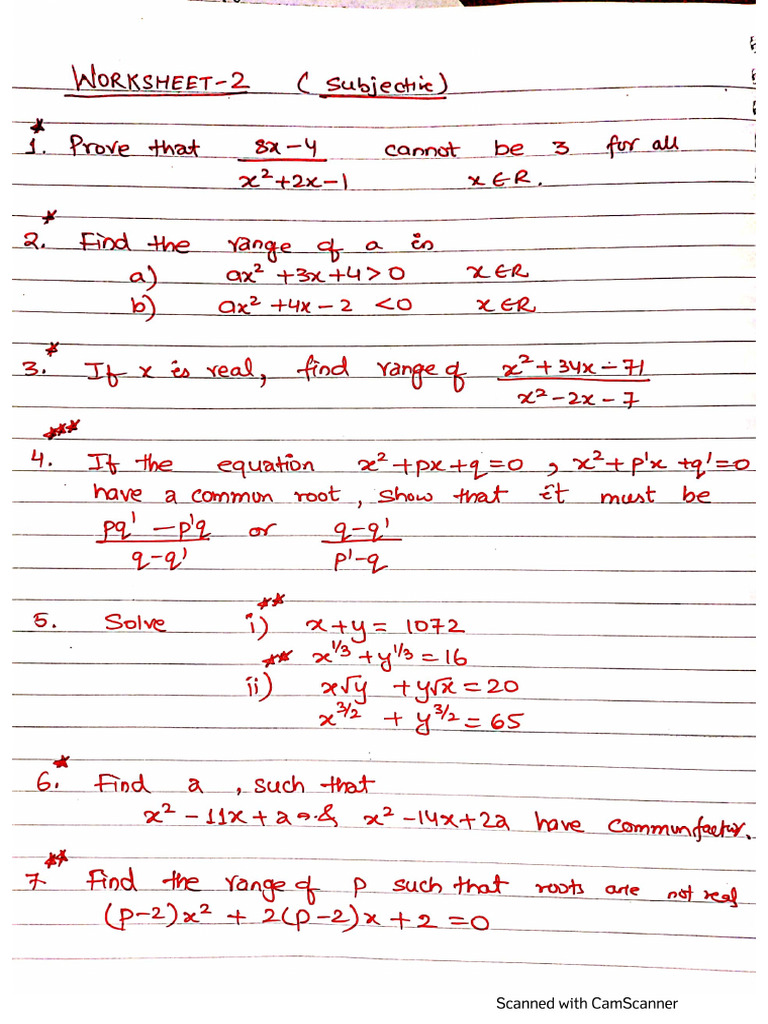 WORKSHEET-2 (Subjective)
1. Prove that (8x-4)/(x²+2x-1) cannot be 3 for all
x∈R.
2. Find the range of a is
a) ax² +3x+4>0 x∈R
b) ax² +4x-2 <0 x∈R
3. If x is real, find range of (x²+34x-71)/(x²-2x-7)
4. If the equation x²+px+q=0, x²+p'x+q'=0
have a common root, show that it must be
(pq'-p'q)/(q-q') or (q-q')/(p'-q)
5. Solve i) x+y= 1072
x^1/3+y^1/3=16
ii) x√y +y√x=20
x^3/2 + y^3/2=65
6. Find a, such that
x²-11x+a & x²-14x+2a have common factor.
7 Find the range of p such that roots are not real
(p-2)x² + 2(p-2)x+2=0
Scanned with CamScanner